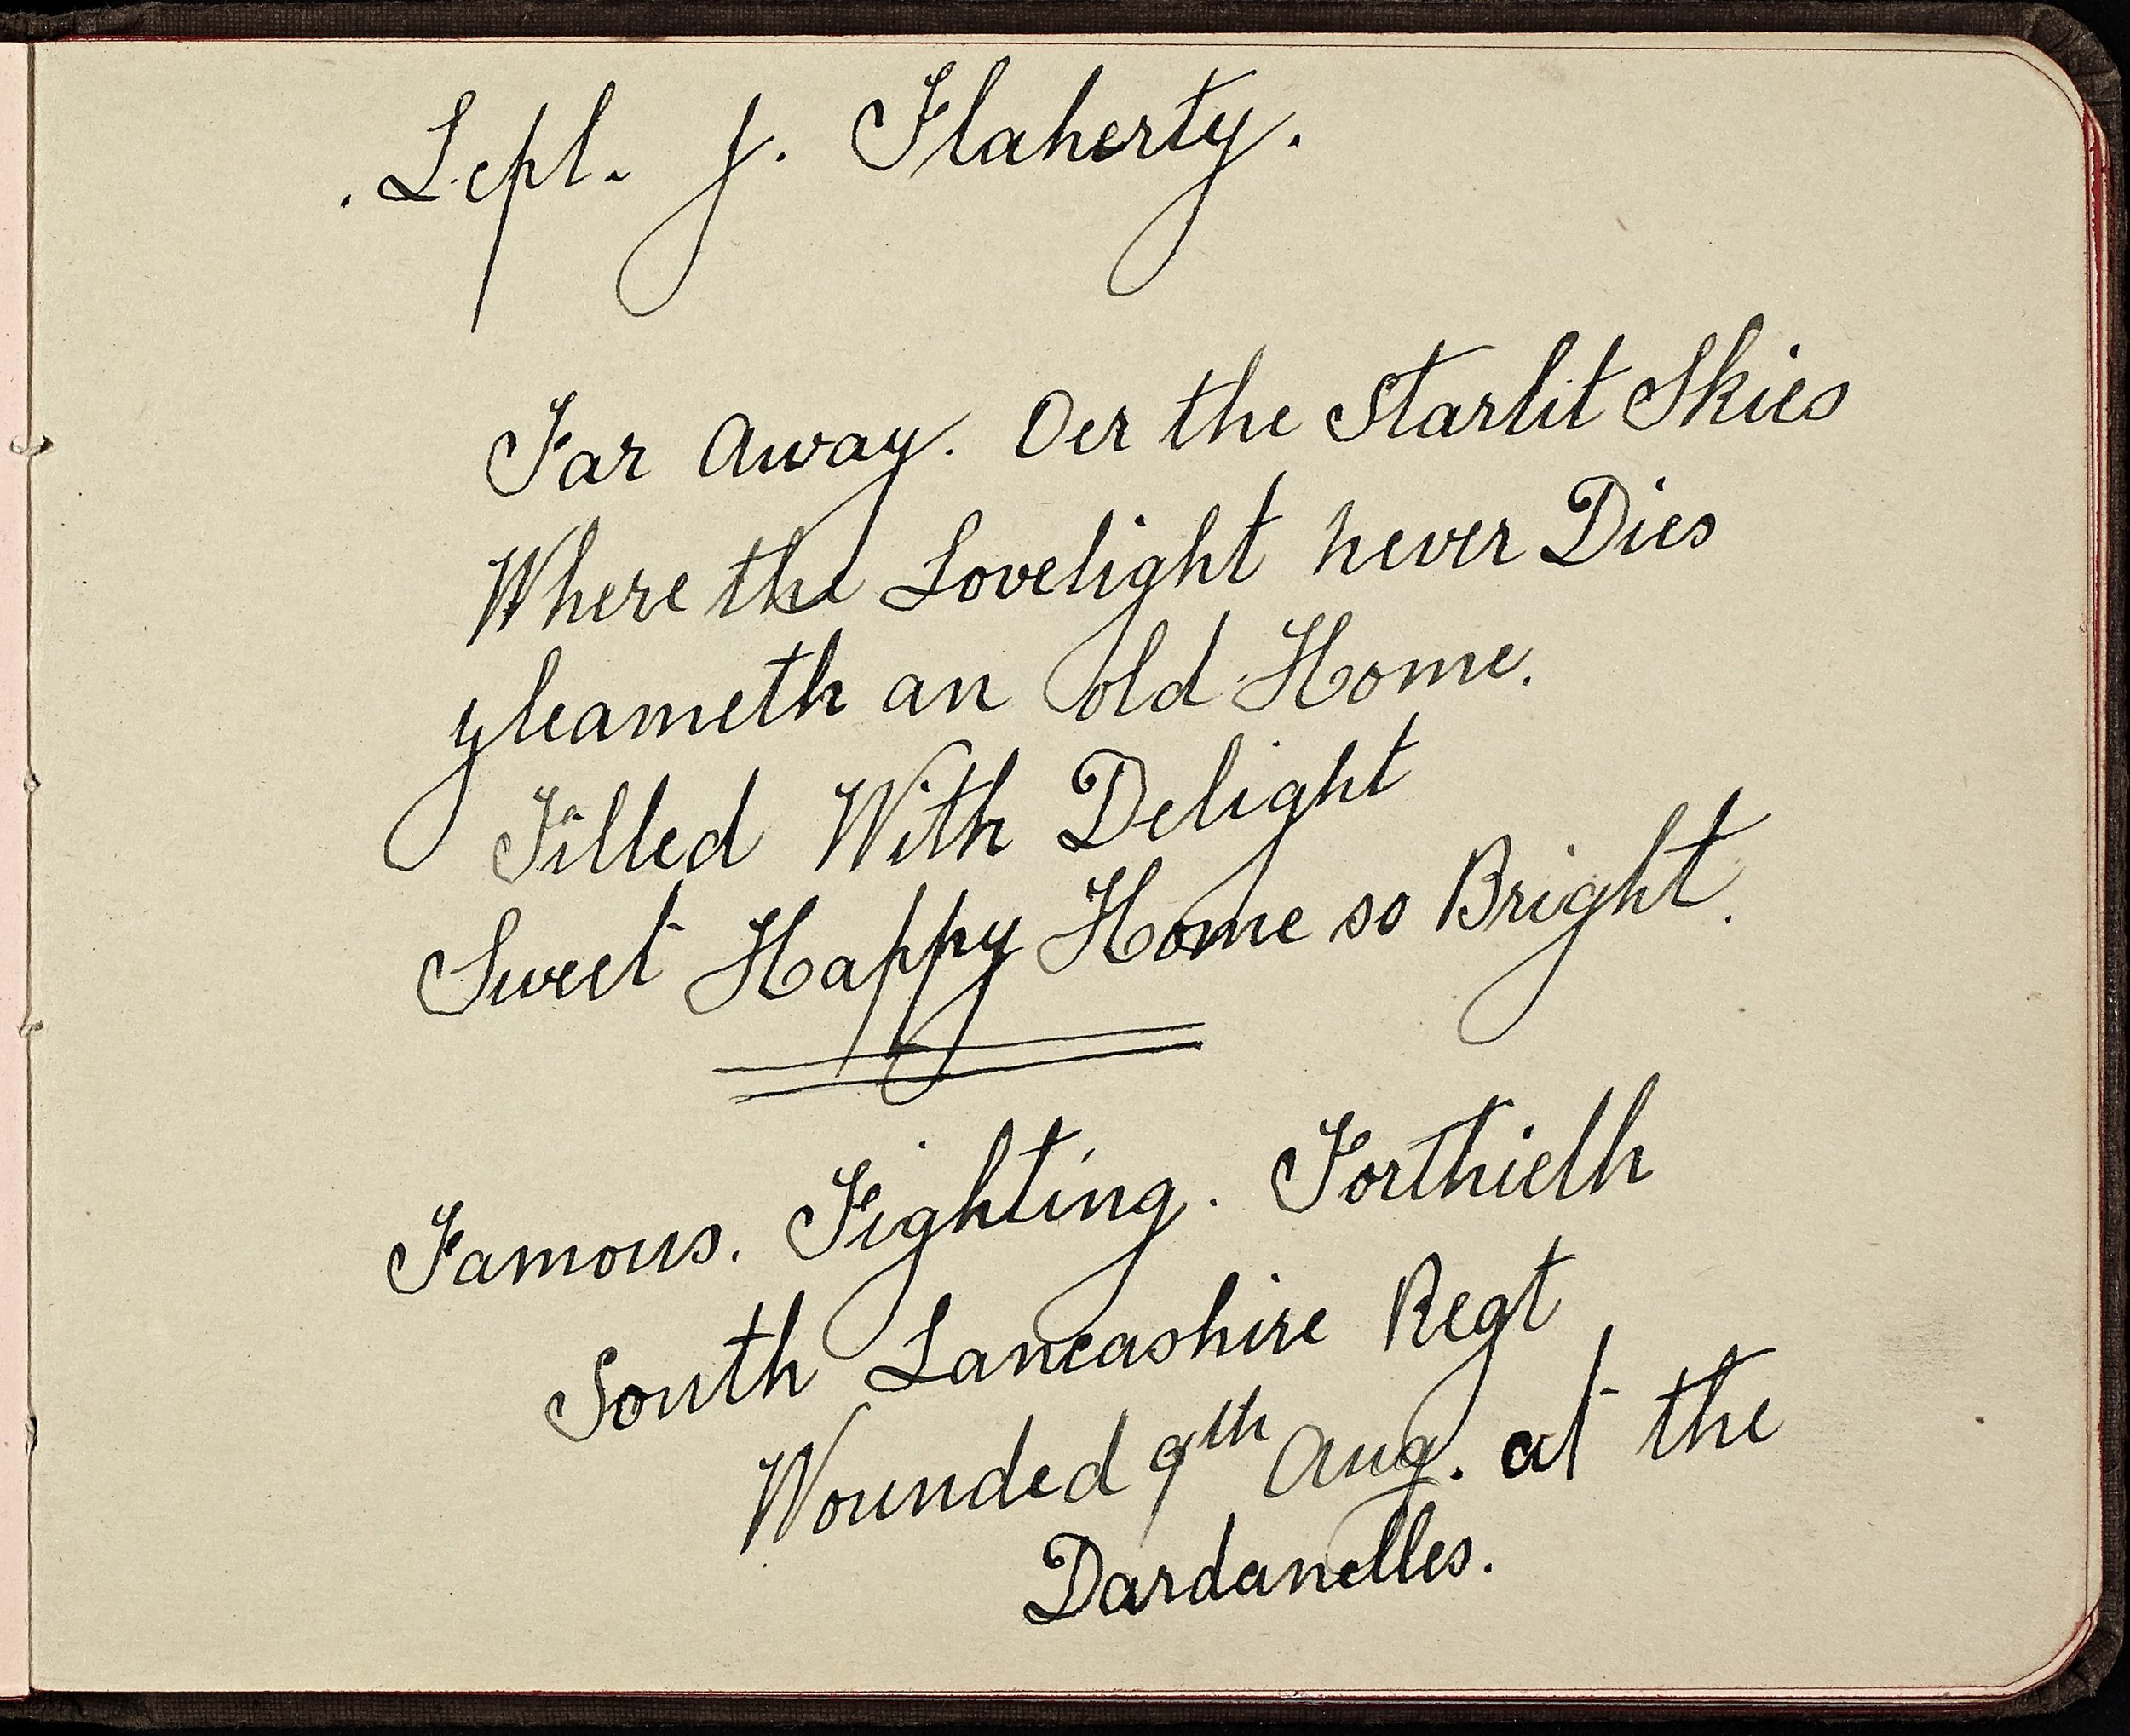 . L.cpl. J. Flaherty.
Far Away. Oer the Starlit Skies
Where the Lovelight never Dies
gleameth an old Home.
Filled With Delight
Sweet Happy Home so Bright.
Famous. Fighting. Forthieth
South Lancashire Regt
Wounded 9th Aug. at the
Dardanelles.